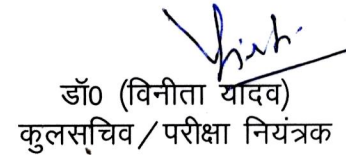 डॉ0 (विनीता यादव)
कुलसचिव / परीक्षा नियंत्रक